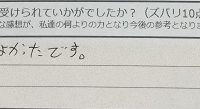 受けられていかがでしたか？（ズバリ10点
な感想が、私達の何よりの力となり今後の参考となりま
よかたです。